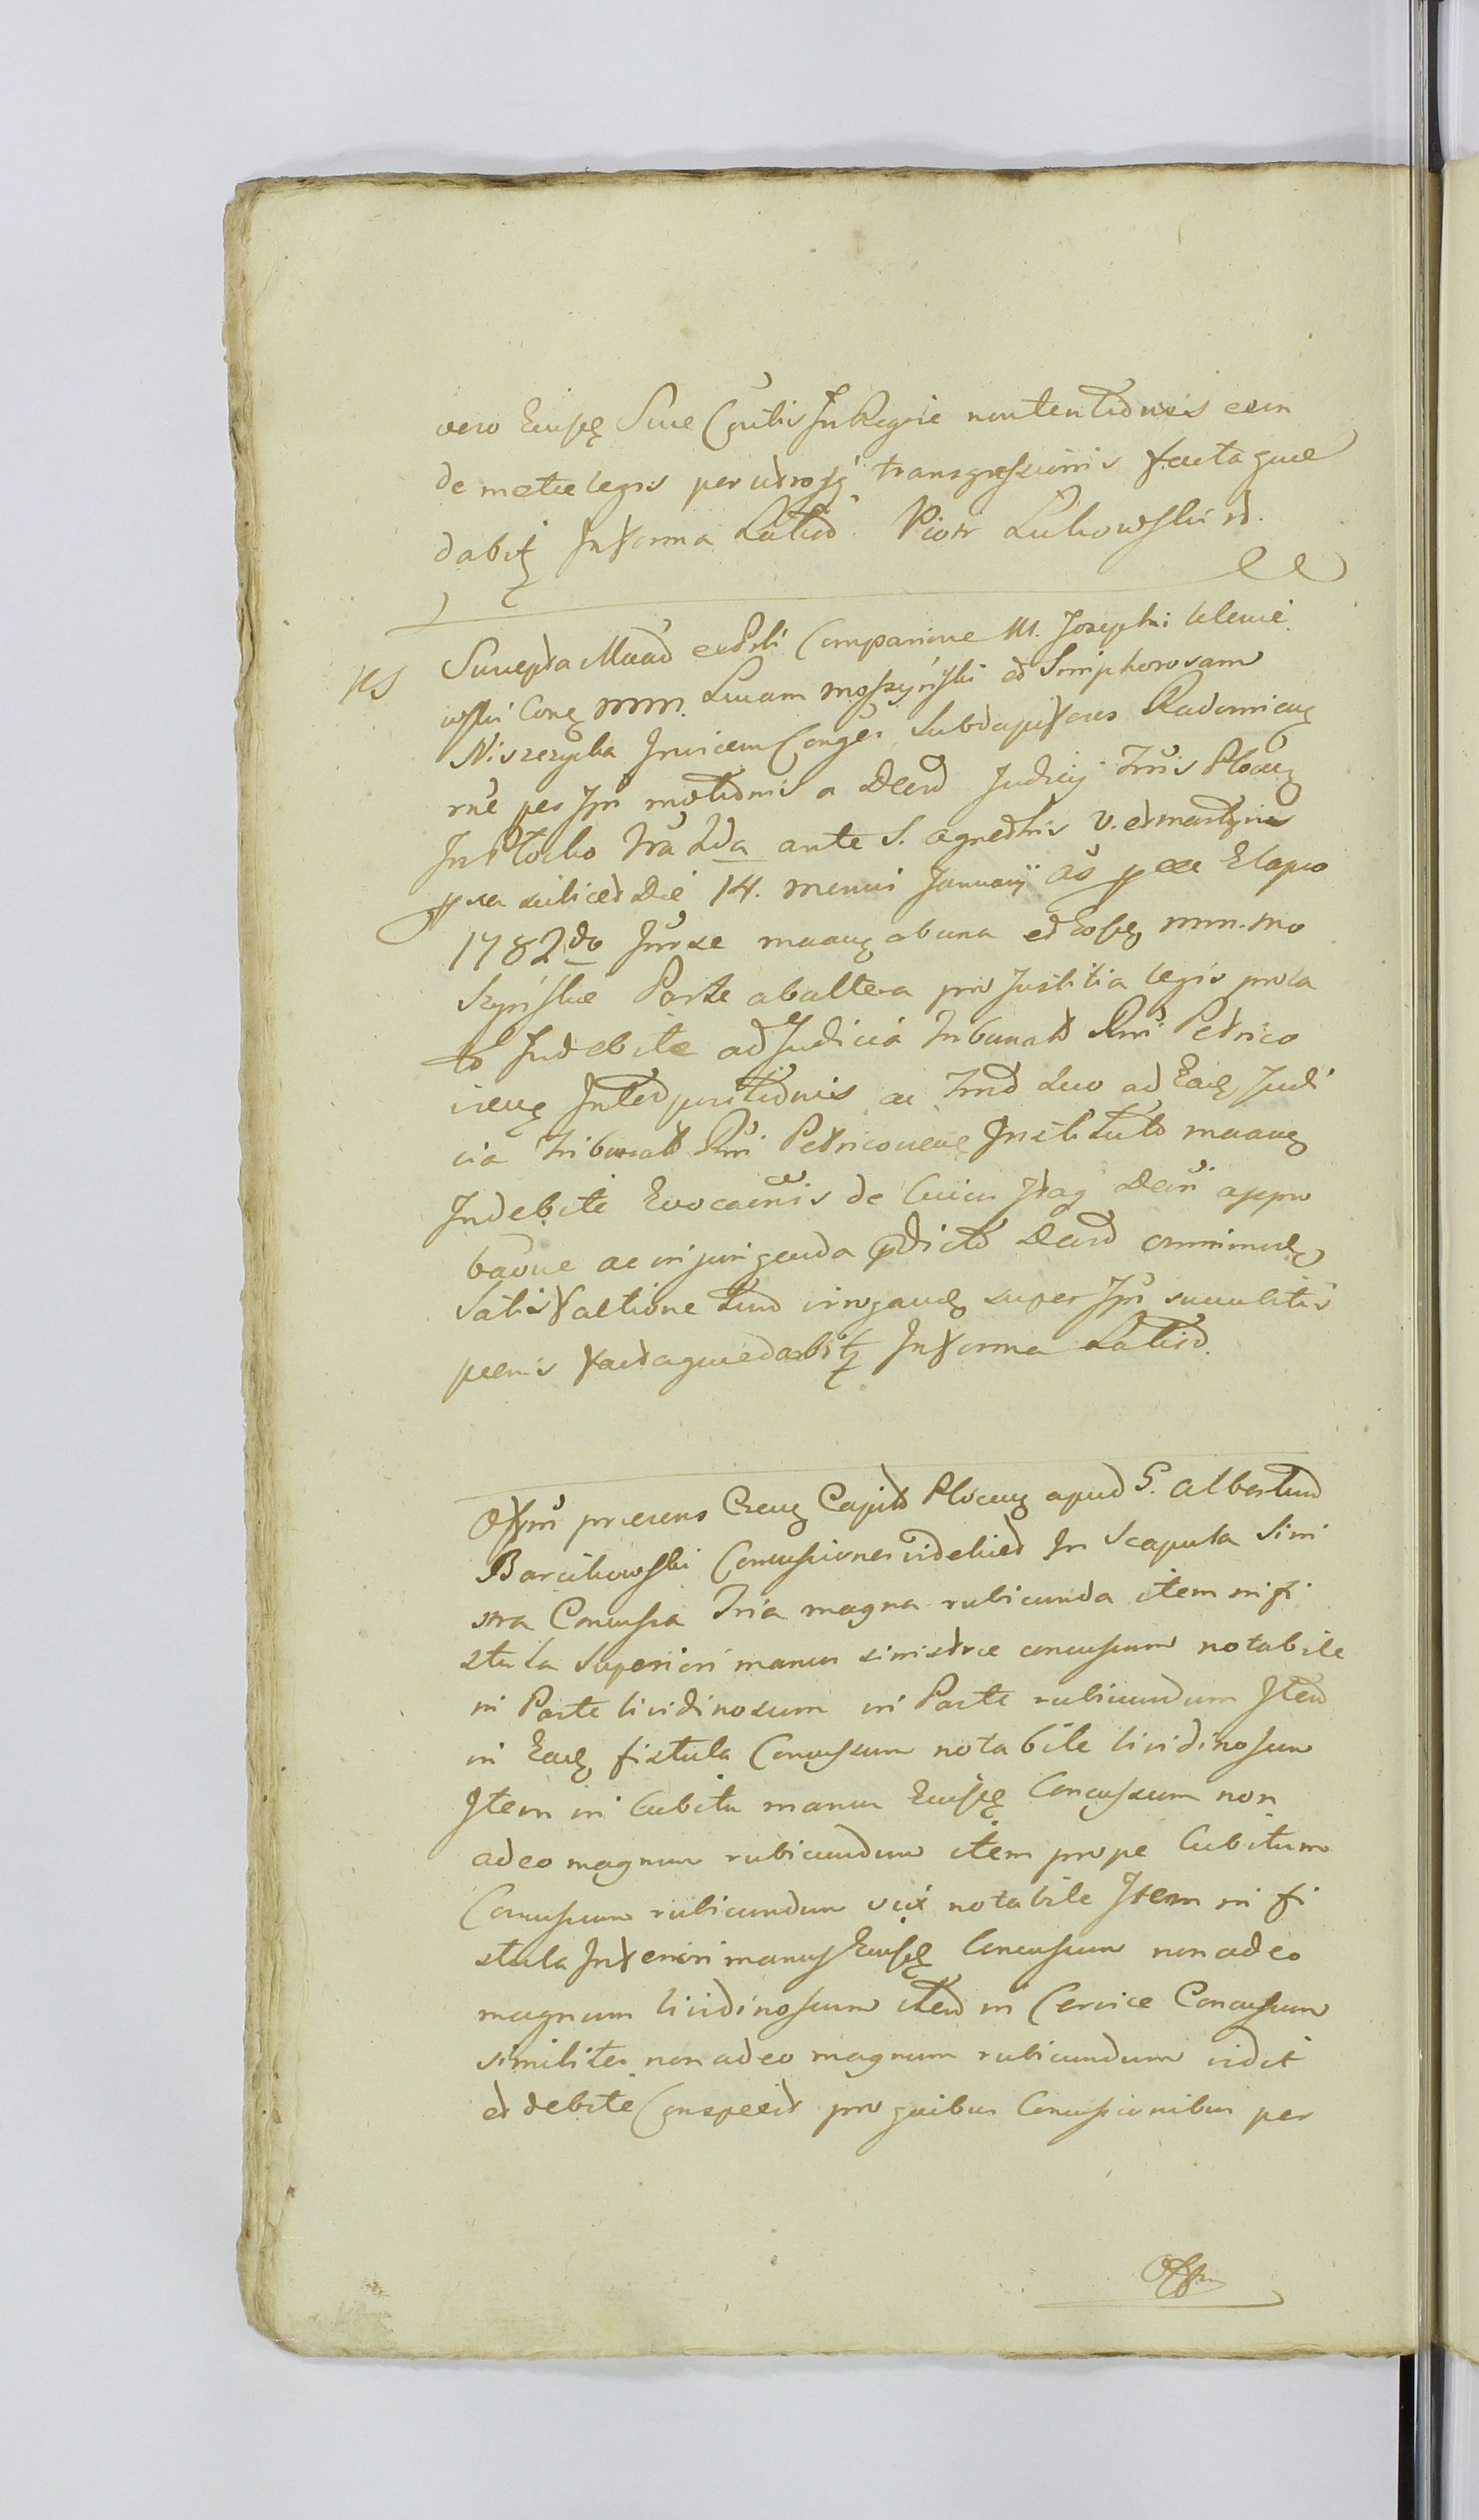 vero Eiusdẹ Sive Contis In Regnie nontentionis eoun
de metue legis per utrosq transgressionis factaque
dabit In forma Latiori Piotr Lukowski rd.
NS Suscepta Mand ex Prti Comparione M. Josephi
wski Conẹ mm. Lucam Moszyński et Simphorosam
Niszczycka Invicem Conges Subdapiferos Radomienẹ
rne per Ipm a Decrd Judicij Tris Plocenẹ
In Płocko fra 2da ante S. agnetis V. et martyris
pxa scilicet Die 14. mensis Januarij ao pxe Elapso
1782do Inr se maang ab una et Eosdẹ mm. Mo
szyńskie Parte ab altera pro Justitia legis prola
to Indebite ad Judicia Tribunats Rni Petrico
viens Interpositionis ac Tmd suo ad Eadẹ Judi
cia Tribunats Rni Petricoviens Instituto maang
Indebite Evocaonis de Cuius Itaq Decri appro
baone ac injungenda pdicto Decrd omnimodẹ
Satisfactione irrogandẹ super Ipm succubitis
poenis factaquedabit In forma Latiori.
Offm praesens Crens Capits Plocens apud G. Albertum
Barcikowski Concussiones videlicet In Scapula Sini
stra Concussa Tria magna rubicunda item in fi
stula Superiori manus sinistrae concussum notabile
in Parte lividinosum in Parte rubicundum Item
in Eadẹ fistula Concussum notabile lividinosum
Item in Cubitu manus Eiusdẹ Concussum non
adeo magnum rubicundum item prope Cubitum
Concussum rubicundum vix notabile Item in fi
stula Inferiori manus Eiusdẹ Concussum non adeo
magnum lividinosum item in Cervice Concussum
similiter non adeo magnum rubicundum vidit
et debite Conspexit pro quibus Concussionibus per
Offm